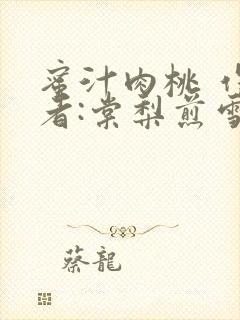 蜜汁肉桃 作
者:棠梨煎雪
蔡龍